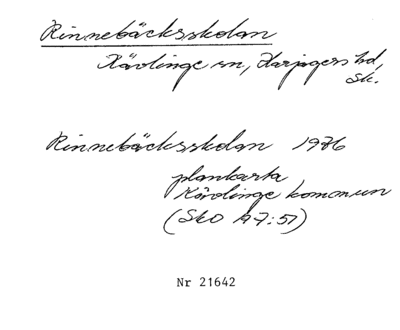 Rinnebäcksskolan
Kävlinge sn, Harjagers hd,
Sk.
Rinnebäcksskolan 1976
plankarta
Kävlinge kommun
(SkO 197:51)
Nr 21642